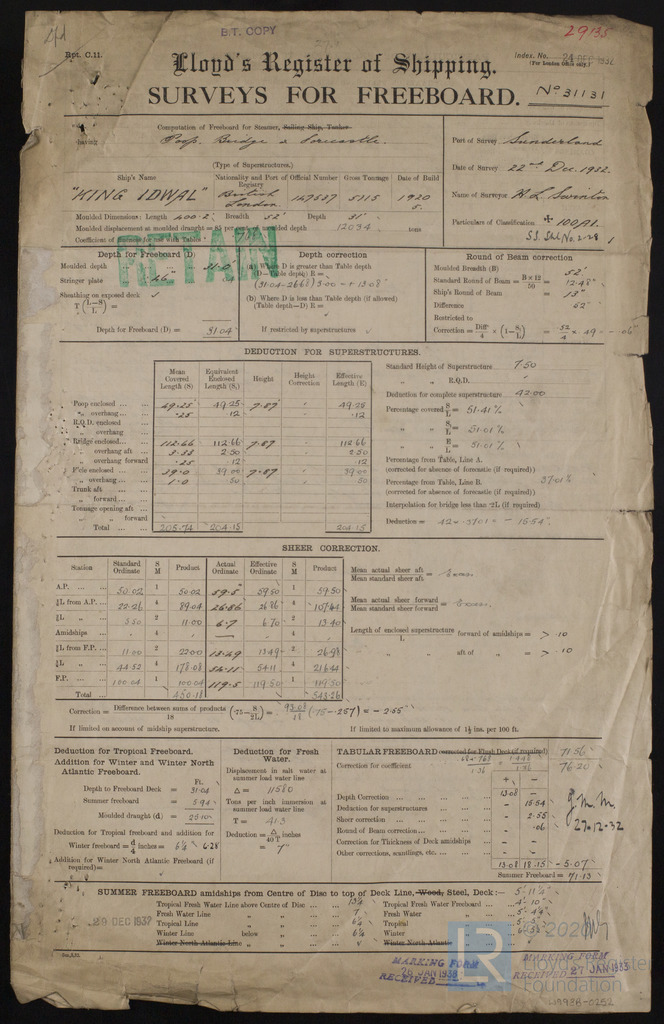 B.T. COPY
29135
Rpt. C.11.
Index. No.
24 DEC 1932
(For London Office only.)
Lloyd's Register of Shipping.
SURVEYS FOR FREEBOARD.
No 31131
Computation of Freeboard for Steamer, Sailing Ship, Tanker
having Poop, Bridge & Forecastle.
(Type of Superstructures.)
Port of Survey Sunderland
Date of Survey 22nd Dec. 1932.
Name of Surveyor
Particulars of Classification ✠ 100A1.
Ship's Name
Nationality and Port of Registry
Official Number
Gross Tonnage
Date of Build
"KING IDWAL"
British London
5115
1920
5.
Moulded Dimensions: Length 400.2 Breadth 52' Depth 31'
Moulded displacement at moulded draught = 85 per cent. of moulded depth 12034 tons
Coefficient of fineness for use with Tables
RETAIN
Depth for Freeboard (D)
Moulded depth ... 31.0
Stringer plate
Sheathing on exposed deck
T (L-S / L) =
Depth for Freeboard (D) = 31.04
Depth correction
(a) Where D is greater than Table depth
(D—Table depth) R =
(31.04-26.68) 3.00 = + 13.08
(b) Where D is less than Table depth (if allowed)
(Table depth—D) R =
If restricted by superstructures
Round of Beam correction
Moulded Breadth (B) 52'
Standard Round of Beam = B×12 / 50 = 12.48"
Ship's Round of Beam = 13"
Difference .52"
Restricted to
Correction = Diff / 4 × (1 - S₁ / L) = .52 / 4 × .49 = -.06
DEDUCTION FOR SUPERSTRUCTURES.
Mean Covered Length (S)
Equivalent Enclosed Length (S₁)
Height
Height Correction
Effective Length (E)
Poop enclosed ... 49.25 49.25 7.87 49.25
„ overhang ... .25 .12 .12
R.Q.D. enclosed
„ overhang
Bridge enclosed... 112.66 112.66 7.87 112.66
„ overhang aft ... 3.33 2.50 2.50
„ overhang forward .25 .12 .12
F'cle enclosed ... 39.0 39.00 7.87 39.00
„ overhang ... 1.0 .50 .50
Trunk aft
„ forward...
Tonnage opening aft ...
„ forward
Total ... 205.74 204.15 204.15
Standard Height of Superstructure 7.50
„ „ R.Q.D.
Deduction for complete superstructure 42.00
Percentage covered S / L = 51.41%
„ „ S₁ / L = 51.01%
„ „ E / L = 51.01%
Percentage from Table, Line A.
(corrected for absence of forecastle (if required))
Percentage from Table, Line B. 37.01%
(corrected for absence of forecastle (if required))
Interpolation for bridge less than ·2L (if required)
Deduction = 42 × .3701 = - 15.54
SHEER CORRECTION.
Station
Standard Ordinate
S M
Product
Actual Ordinate
Effective Ordinate
S M
Product
A.P. ... 50.02 1 50.02 59.5 59.50 1 59.50
⅙L from A.P. ... 22.26 4 89.04 26.86 26.86 4 107.44
⅓L „ 5.50 2 11.00 6.7 6.70 2 13.40
Amidships 4 — 4
⅓L from F.P. ... 11.00 2 22.00 13.49 13.49 2 26.98
⅙L „ 44.52 4 178.08 54.11 54.11 4 216.44
F.P. ... 100.04 1 100.04 119.5 119.50 1 119.50
Total ... 450.18 543.26
Mean actual sheer aft / Mean standard sheer aft = Excess.
Mean actual sheer forward / Mean standard sheer forward = Excess.
Length of enclosed superstructure / L forward of amidships = > .10
„ aft of „ = > .10
Correction = Difference between sums of products / 18 (·75 - S / 2L) = 93.08 / 18 (.75 - .257) = - 2.55
If limited on account of midship superstructure.
If limited to maximum allowance of 1½ ins. per 100 ft.
Deduction for Tropical Freeboard.
Addition for Winter and Winter North Atlantic Freeboard.
Ft.
Depth to Freeboard Deck = 31.04
Summer freeboard = 5.94
Moulded draught (d) = 25.10
Deduction for Tropical freeboard and addition for
Winter freeboard = d / 4 inches = 6¼ 6.28
Addition for Winter North Atlantic Freeboard (if required) =
Deduction for Fresh Water.
Displacement in salt water at summer load water line
Δ = 11580
Tons per inch immersion at summer load water line
T = 41.3
Deduction = Δ / 40 T inches
= 7"
TABULAR FREEBOARD corrected for Flush Deck (if required) 71.56
Correction for coefficient 76.20
+ -
Depth Correction ... 13.08 -
Deduction for superstructures ... - 15.54
Sheer correction ... - 2.55
Round of Beam correction... - .06
Correction for Thickness of Deck amidships ... - -
Other corrections, scantlings, etc. ... - -
13.08 18.15 - 5.07
Summer Freeboard = 71.13
27-12-32
SUMMER FREEBOARD amidships from Centre of Disc to top of Deck Line, Wood, Steel, Deck:— 5'- 11¼"
Tropical Fresh Water Line above Centre of Disc ... 13¼
Fresh Water Line „ „ ... 7
Tropical Line „ „ ... 6¼
Winter Line below „ ... 6¼
Winter North Atlantic Line „ „
Tropical Fresh Water Freeboard ... 4'- 10"
Fresh Water „ 5'- 4¼
Tropical „
Winter „
Winter North Atlantic „
29 DEC 1932
MARKING FORM
RECEIVED 26 JAN 1933
MARKING FORM
RECEIVED 27 JAN 1933
© 2020
LR
Lloyd's Register
Foundation